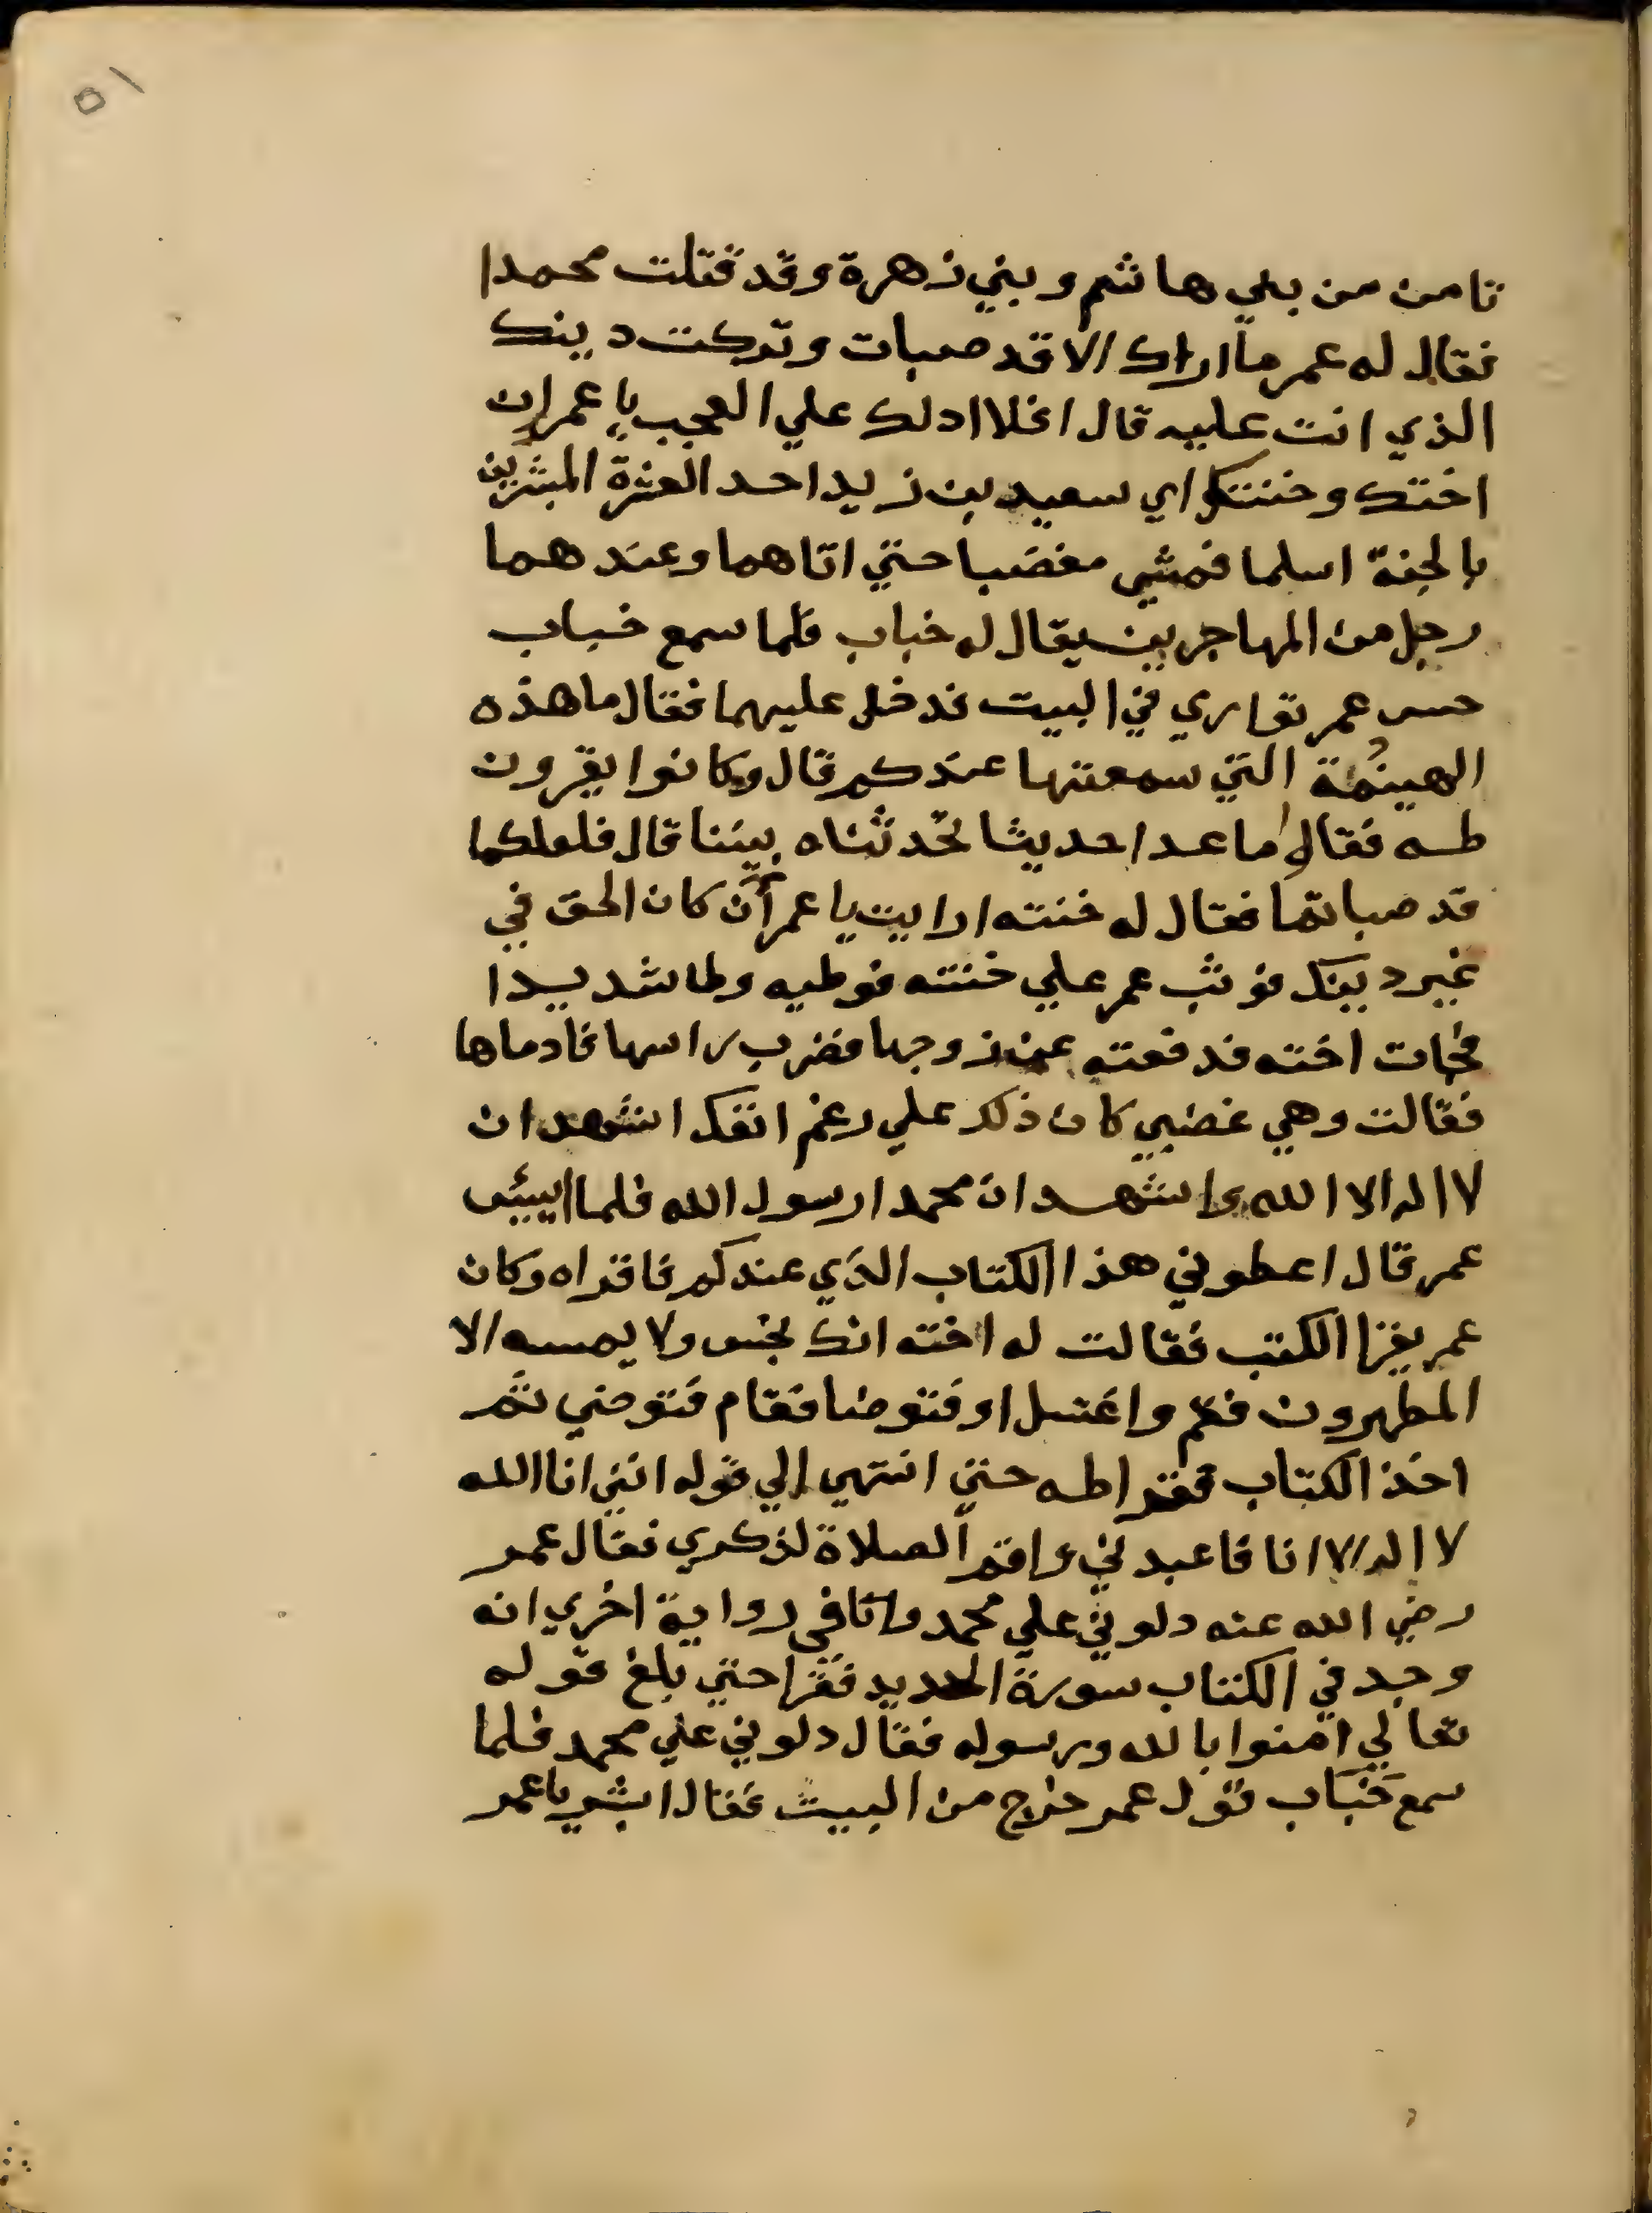 ٥١
تامن من بني هاشم وبني زهرة وقد قتلت محمدا
فقال له عمر ما اراك الا قد صبات وتركت دينك
الذي انت عليه قال افلا ادلك علي العجب يا عمر ان
اختك وختنك اي سعيد بن زيد احد العشرة المبشرين
بالجنة اسلما فمشي مغضبا حتي اتاهما وعندهما
رجل من المهاجرين يقال له خباب فلما سمع خباب
حس عمر تواري في البيت فدخل عليهما فقال ما هذه
الهينمة التي سمعتها عندكم قال وكانوا يقرون
طه فقالا ما عدا حديثا تحدثناه بيننا قال فلعلكما
قد صباتما فقال له ختنه ارايت يا عمر ان كان الحق في
غير دينك فوثب عمر علي ختنه فوطيه وطا شديدا
فجات اخته فدفعته عن زوجها فضرب راسها فادماها
فقالت وهي غضبي كان ذلك علي رغم انفك اشهد ان
لا اله الا الله واشهد ان محمدا رسول الله فلما اييئس
عمر قال اعطوني هذا الكتاب الذي عندكم فاقراه وكان
عمر يقرا الكتب فقالت له اخته انك نجس ولا يمسه الا
المطهرون فقم واغتسل او فتوضا فقام فتوضي ثم
اخذ الكتاب فقرا طه حتي انتهي الي قوله انني انا الله
لا اله الا انا فاعبدني واقم الصلاة لذكري فقال عمر
رضي الله عنه دلوني علي محمد واتا في رواية اخري انه
وجد في الكتاب سورة الحديد فقرا حتي بلغ قوله
تعالي امنوا بالله ورسوله فقال دلوني علي محمد فلما
سمع خباب قول عمر خرج من البيت فقال ابشر يا عمر